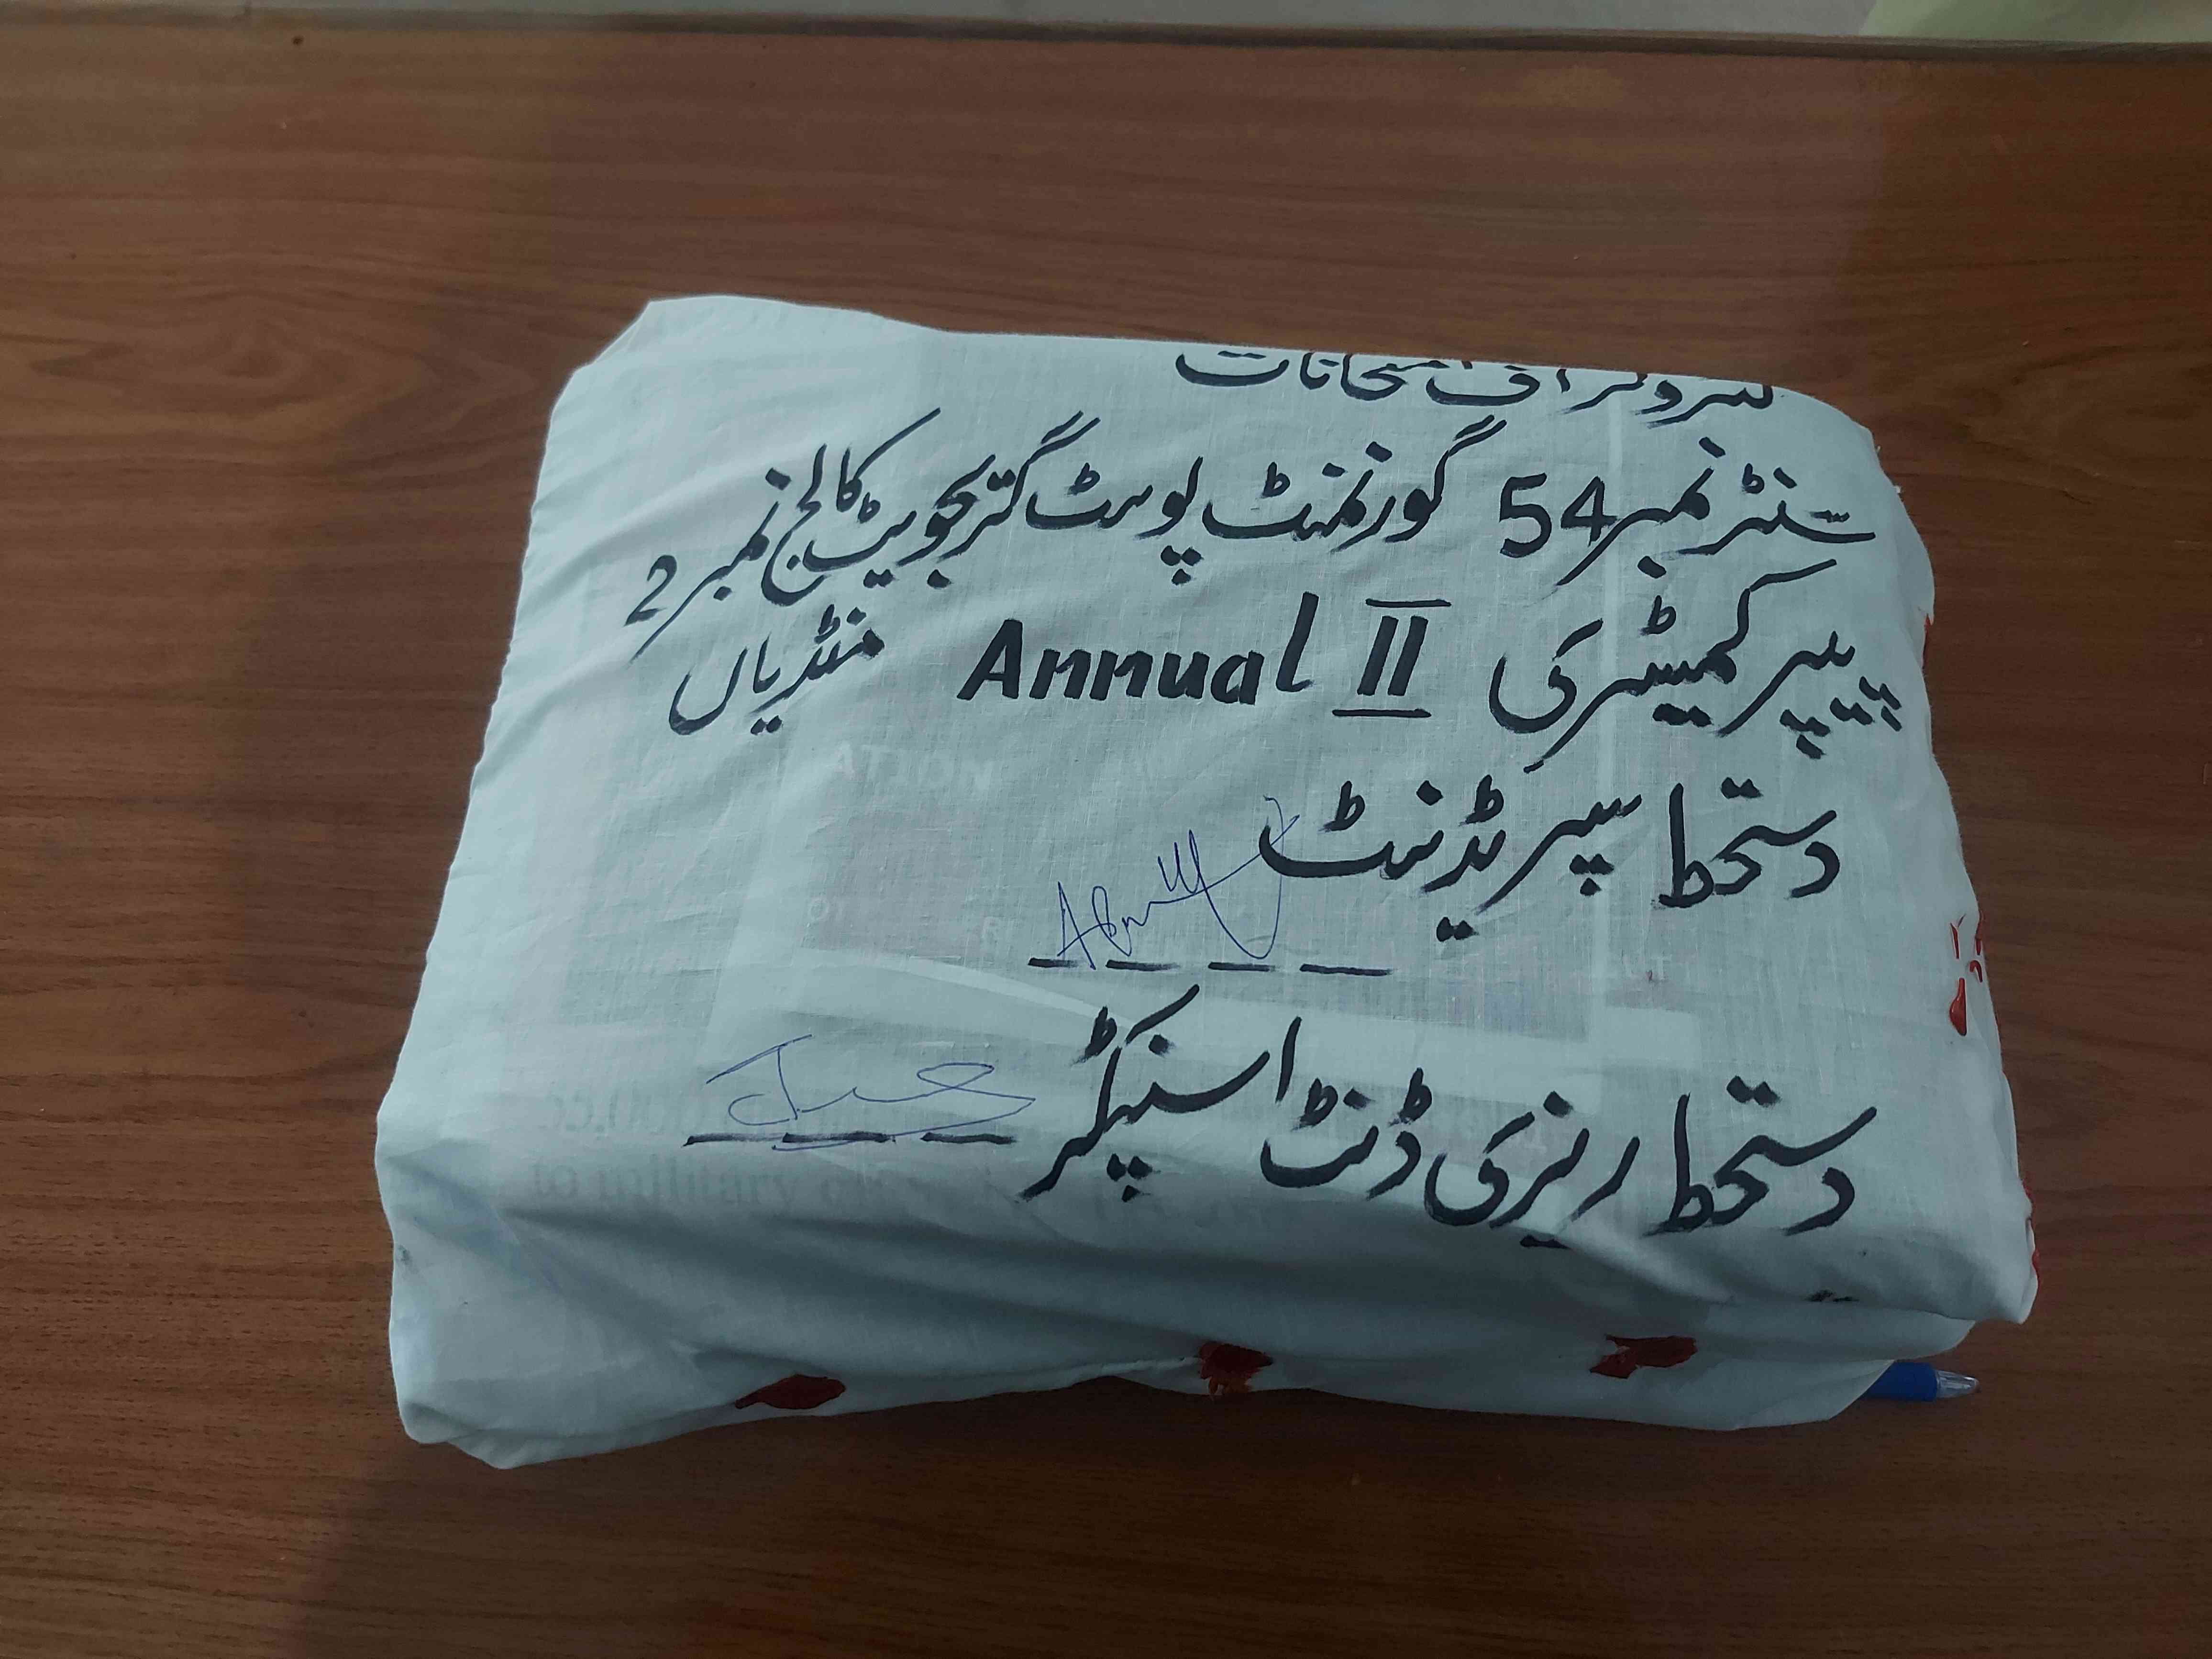 کنٹرولر آف امتحانات
سنٹر نمبر 54 گورنمنٹ پوسٹ گریجویٹ کالج نمبر 2
منڈیاں
پیپر کیمسٹری Annual II
دستخط سپریڈنٹ
دستخط ریزی ڈنٹ انسپکٹر
to military